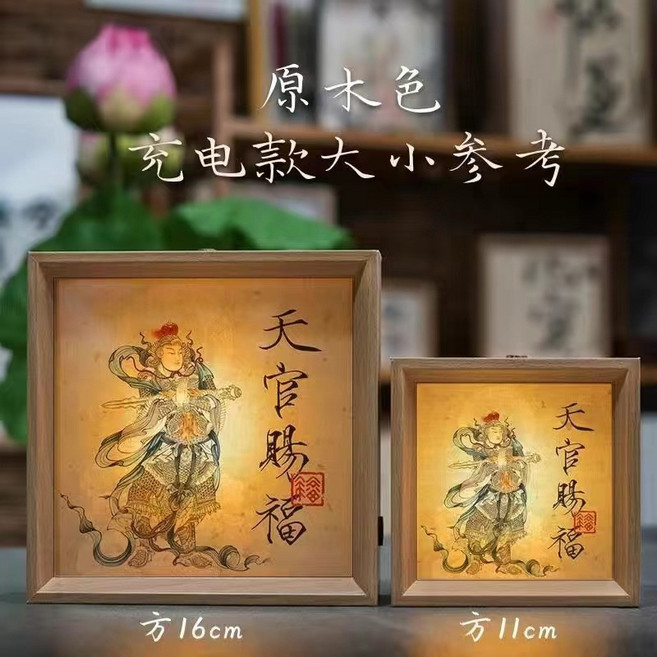 原木色
充电款大小参考
天官赐福
天官赐福
方16cm
方11cm